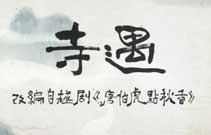 寺遇
改编自越剧《唐伯虎點秋香》